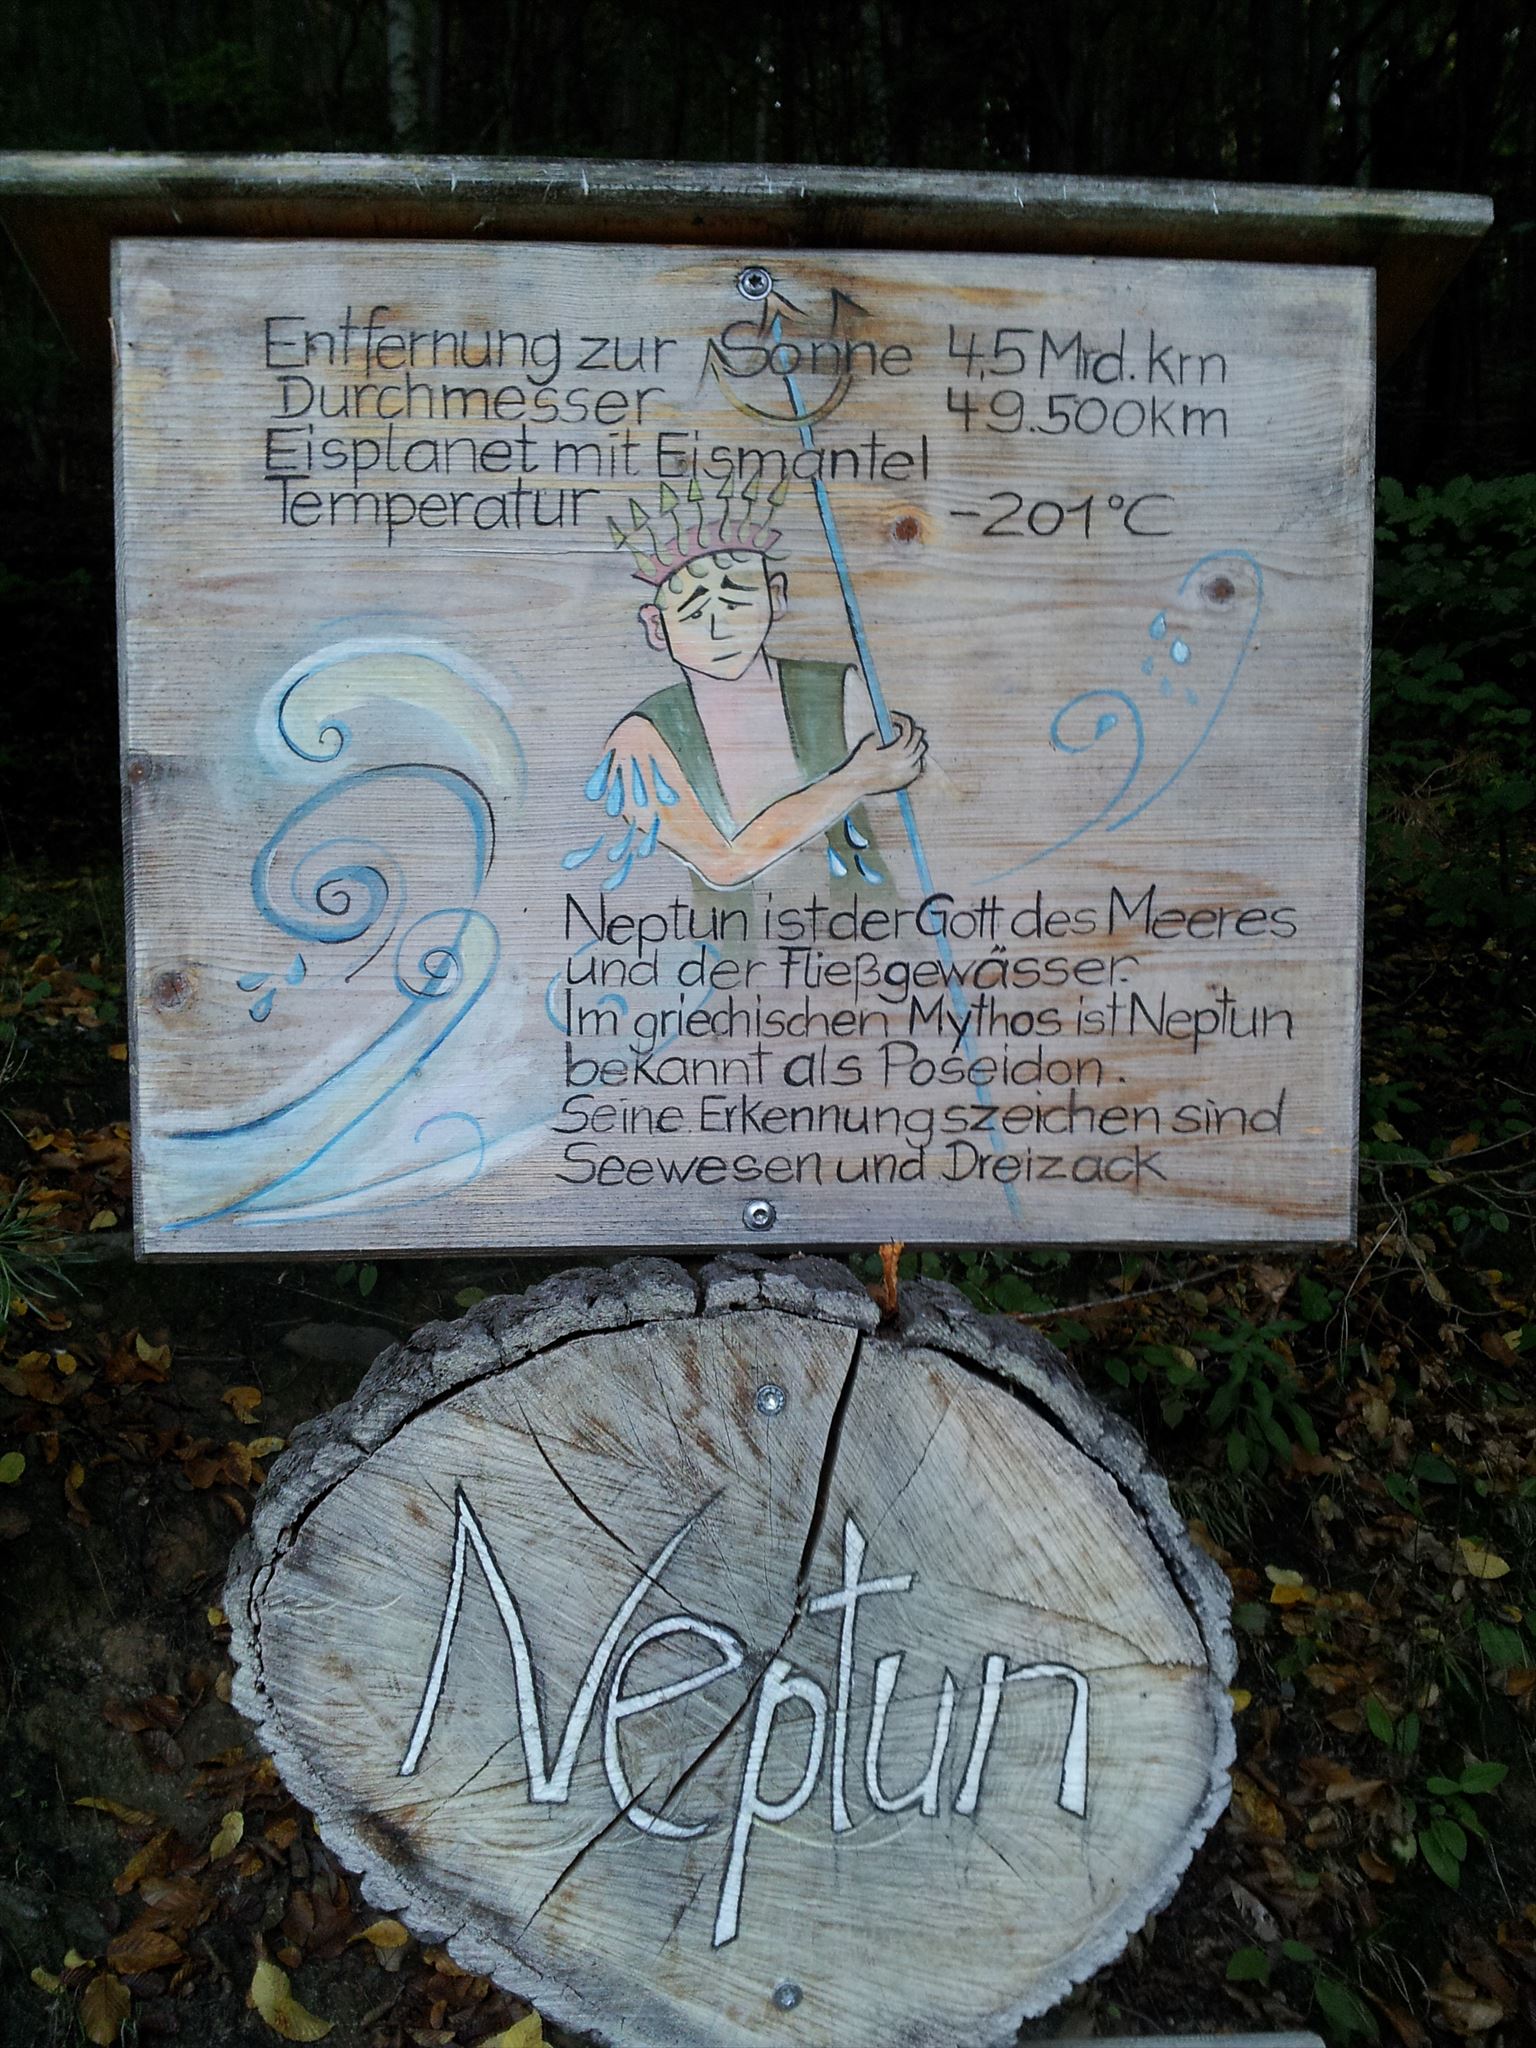 Entfernung zur Sonne 4,5 Mrd. km
Durchmesser 49.500km
Eisplanet mit Eismantel
Temperatur -201°C
Neptun ist der Gott des Meeres
und der Fließgewässer.
Im griechischen Mythos ist Neptun
bekannt als Poseidon.
Seine Erkennungszeichen sind
Seewesen und Dreizack
Neptun